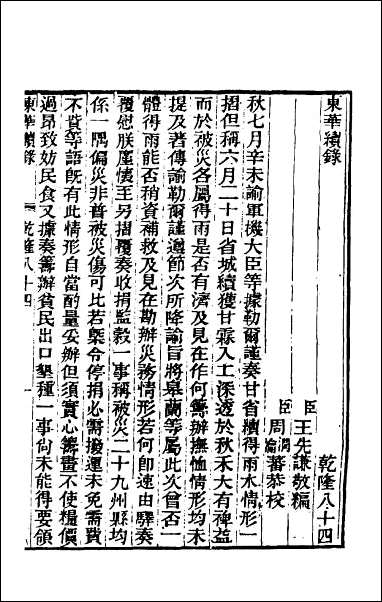 東華續錄
乾隆八十四
臣王先謙敬編
臣周潤蕃恭校
周瀹蕃
秋七月辛未諭軍機大臣等據勒爾謹奏甘省續得雨水情形一
摺但稱六月二十日省城續獲甘霖入土深透於秋禾大有裨益
而於被災各屬得雨是否有濟及見在作何籌辦撫恤情形均未
提及著傳諭勒爾謹遵節次所降諭旨將皋蘭等屬此次曾否一
體得雨能否稍資補救及見在勘辦災務情形若何卽速由驛奏
覆慰朕廑懷至另摺覆奏收捐監穀一事稱被災二十九州縣均
係一隅偏災非普被災傷可比若槩令停捐必需撥運未免需費
不貲等語旣有此情形自當酌量妥辦但須實心籌畫不使糧價
過昂致妨民食又據奏籌辦貧民出口墾種一事尙未能得要領
東華續錄
乾隆八十四
一